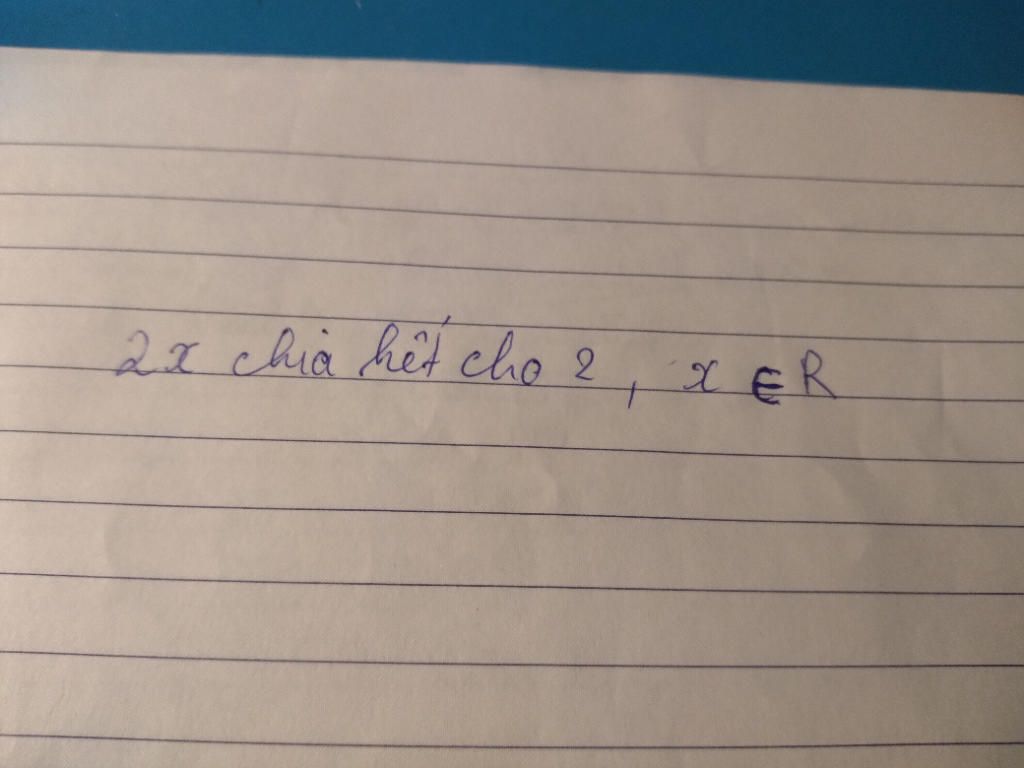 2x chia hết cho 2, x ∈ R